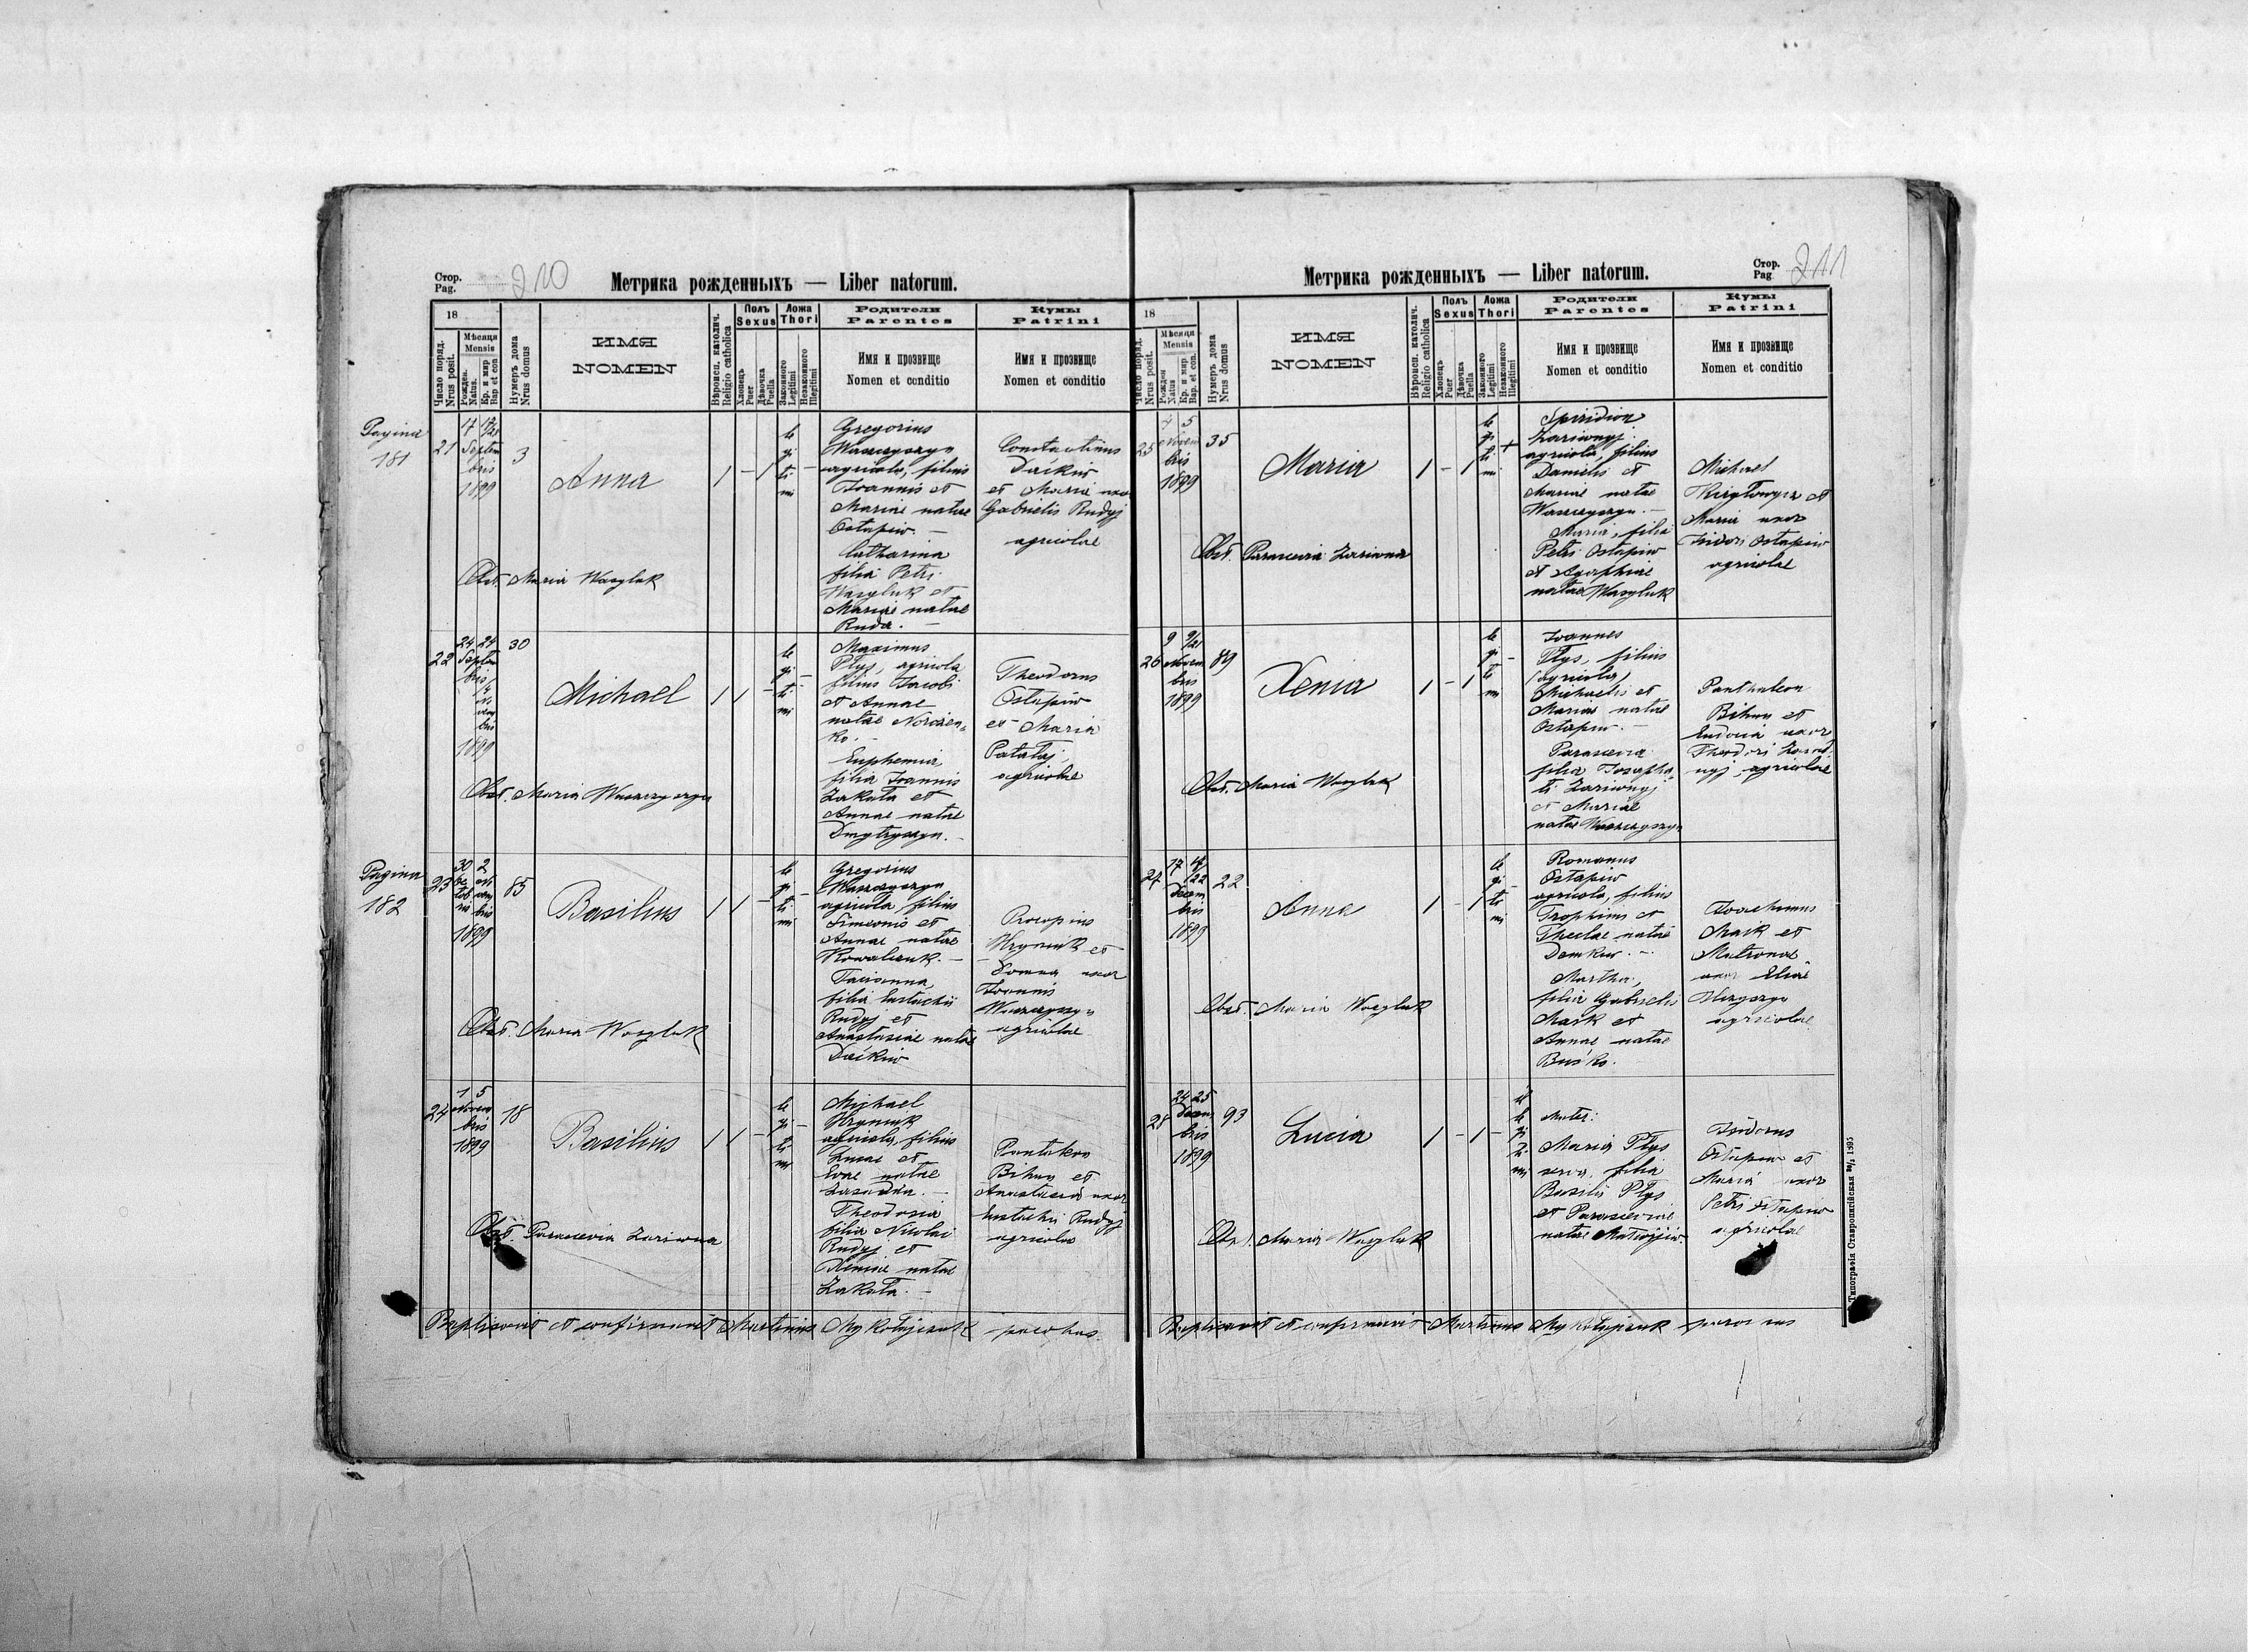 Стор.
Pag.
210
Метрика рожденныхъ — Liber natorum.
18
Число поряд.
Nrus posit.
Мѣсяца
Mensis
Рожден.
Natus.
Кр. и мир
Bap et con
Нумеръ дома
Nrus domus
ИМЯ
NOMEN
Вѣроисп. католич.
Religio catholica
Полъ
Sexus
Хлопецъ
Puer
Дѣвочка
Puella
Ложа
Thori
Законного
Legitimi
Незаконного
Illegitimi
Родители
Parentes
Имя и прозвище
Nomen et conditio
Кумы
Patrini
Имя и прозвище
Nomen et conditio
Pagina
181
21
Septem
bris
1899
3
Anna
1 - 1
le
gi
ti
mi
-
Gregorius
Waszczyszyn
agricola, filius
Joannis et
Mariae natae
Ostapiw. —
Catharina
filia Petri
Wasyluk et
Mariae natae
Ruda. —
Constantinus
Daćkiw
et Maria uxor
Gabrielis Rudyj
agricolae
Obst. Maria Wasyluk
22
24 24
Septem
bris
1899
30
Michael
1 1 -
le
gi
ti
mi
-
Maximus
Ptys, agricola
filius Jacobi
et Annae
natae
ko. —
Euphemia
filia Joannis
Zakała et
Annae natae
Dmytryszyn. —
Theodorus
Ostapiw
et Maria
Patałaj
agricolae
Obst. Maria Waszczyszyn
Pagina
182
23
30 2
1899
85
Basilius
1 1 -
le
gi
ti
mi
-
Gregorius
Waszczyszyn
agricola filius
Simeonis et
Annae natae
Kowalczuk. —
Tacianna,
filia Eustachii
Rudyj et
Anastasiae natae
Daćkiw
Procopius
Hryniuk et
Domna uxor
Joannis
Waszczyszyn
agricolae
Obst. Maria Wasyluk
24
1 5
Novem
bris
1899
18
Basilius
1 1 -
le
gi
ti
mi
-
Michael
Hryniuk
agricola, filius
Lucae et
Evae natae
Theodosia
filia Nicolai
Rudyj et
Xeniae natae
Zakała. —
Pantaleon
Bihun et
Anastasia uxor
Eustachii Rudyj
agricolae
Obst. Parascevia Zariwna
Baptisavit et confirmavit Martinus Mykołajczuk parochus.
Метрика рожденныхъ — Liber natorum.
Стор.
Pag.
211
18
Число поряд.
Nrus posit.
Мѣсяца
Mensis
Рожден
Natus
Кр. и мир
Bap. et con.
Нумеръ дома
Nrus domus
ИМЯ
NOMEN
Вѣроисп. католич.
Religio catholica
Полъ
Sexus
Хлопецъ
Puer
Дѣвочка
Puella
Ложа
Thori
Законного
Legitimi
Незаконного
Illegitimi
Родители
Parentes
Имя и прозвище
Nomen et conditio
Кумы
Patrini
Имя и прозвище
Nomen et conditio
25
4 5
Novem
bris
1899
35
Maria
1 - 1
le
gi
ti
mi
+
Spiridion
Zariwnyj
agricola, filius
Danielis et
Mariae natae
Waszczyszyn. —
Maria, filia
Petri Ostapiw
et Agaphiae
natae Wasyluk
Michael
et
Maria uxor
Isidori Ostapiw
agricolae
Obst. Parascevia Zariwna
26
9 9/21
Novem
bris
1899
89
Xenia
1 - 1
le
gi
ti
mi
-
Joannes
Ptys, filius
(agricola)
Michaelis et
Mariae natae
Ostapiw. —
Parascevia
filia Josapha
ti Zariwnyj
et Mariae
natae Waszczyszyn
Panthaleon
Bihun et
Eudocia uxor
Theodori Zariw
nyj, agricolae
Obst. Maria Wasyluk
27
17 17/22
Decem
bris
1899
22
Anna
1 - 1
le
gi
ti
mi
-
Romanus
Ostapiw
agricola, filius
Trophimi et
Theclae natae
Demkiw. —
Martha,
filia Gabrielis
Mark et
Annae natae
Buśko.
Joachimus
Mark et
Matrona
uxor Eliae
agricolae
Obst. Maria Wasyluk
28
24 25
Decem
bris
1899
93
Lucia
1 - 1 -
il
le
gi
ti
mi
Mater:
Maria Ptys
serva, filia
Basilii Ptys
et Parasceviae
natae Matwijiw.
Isidorus
Ostapiw et
Maria uxor
Petri Ostapiw
agricolae
Obst. Maria Wasyluk
Baptisavit et confirmavit Martinus Mykołajczuk parochus
Типографія Ставропигійская 1895